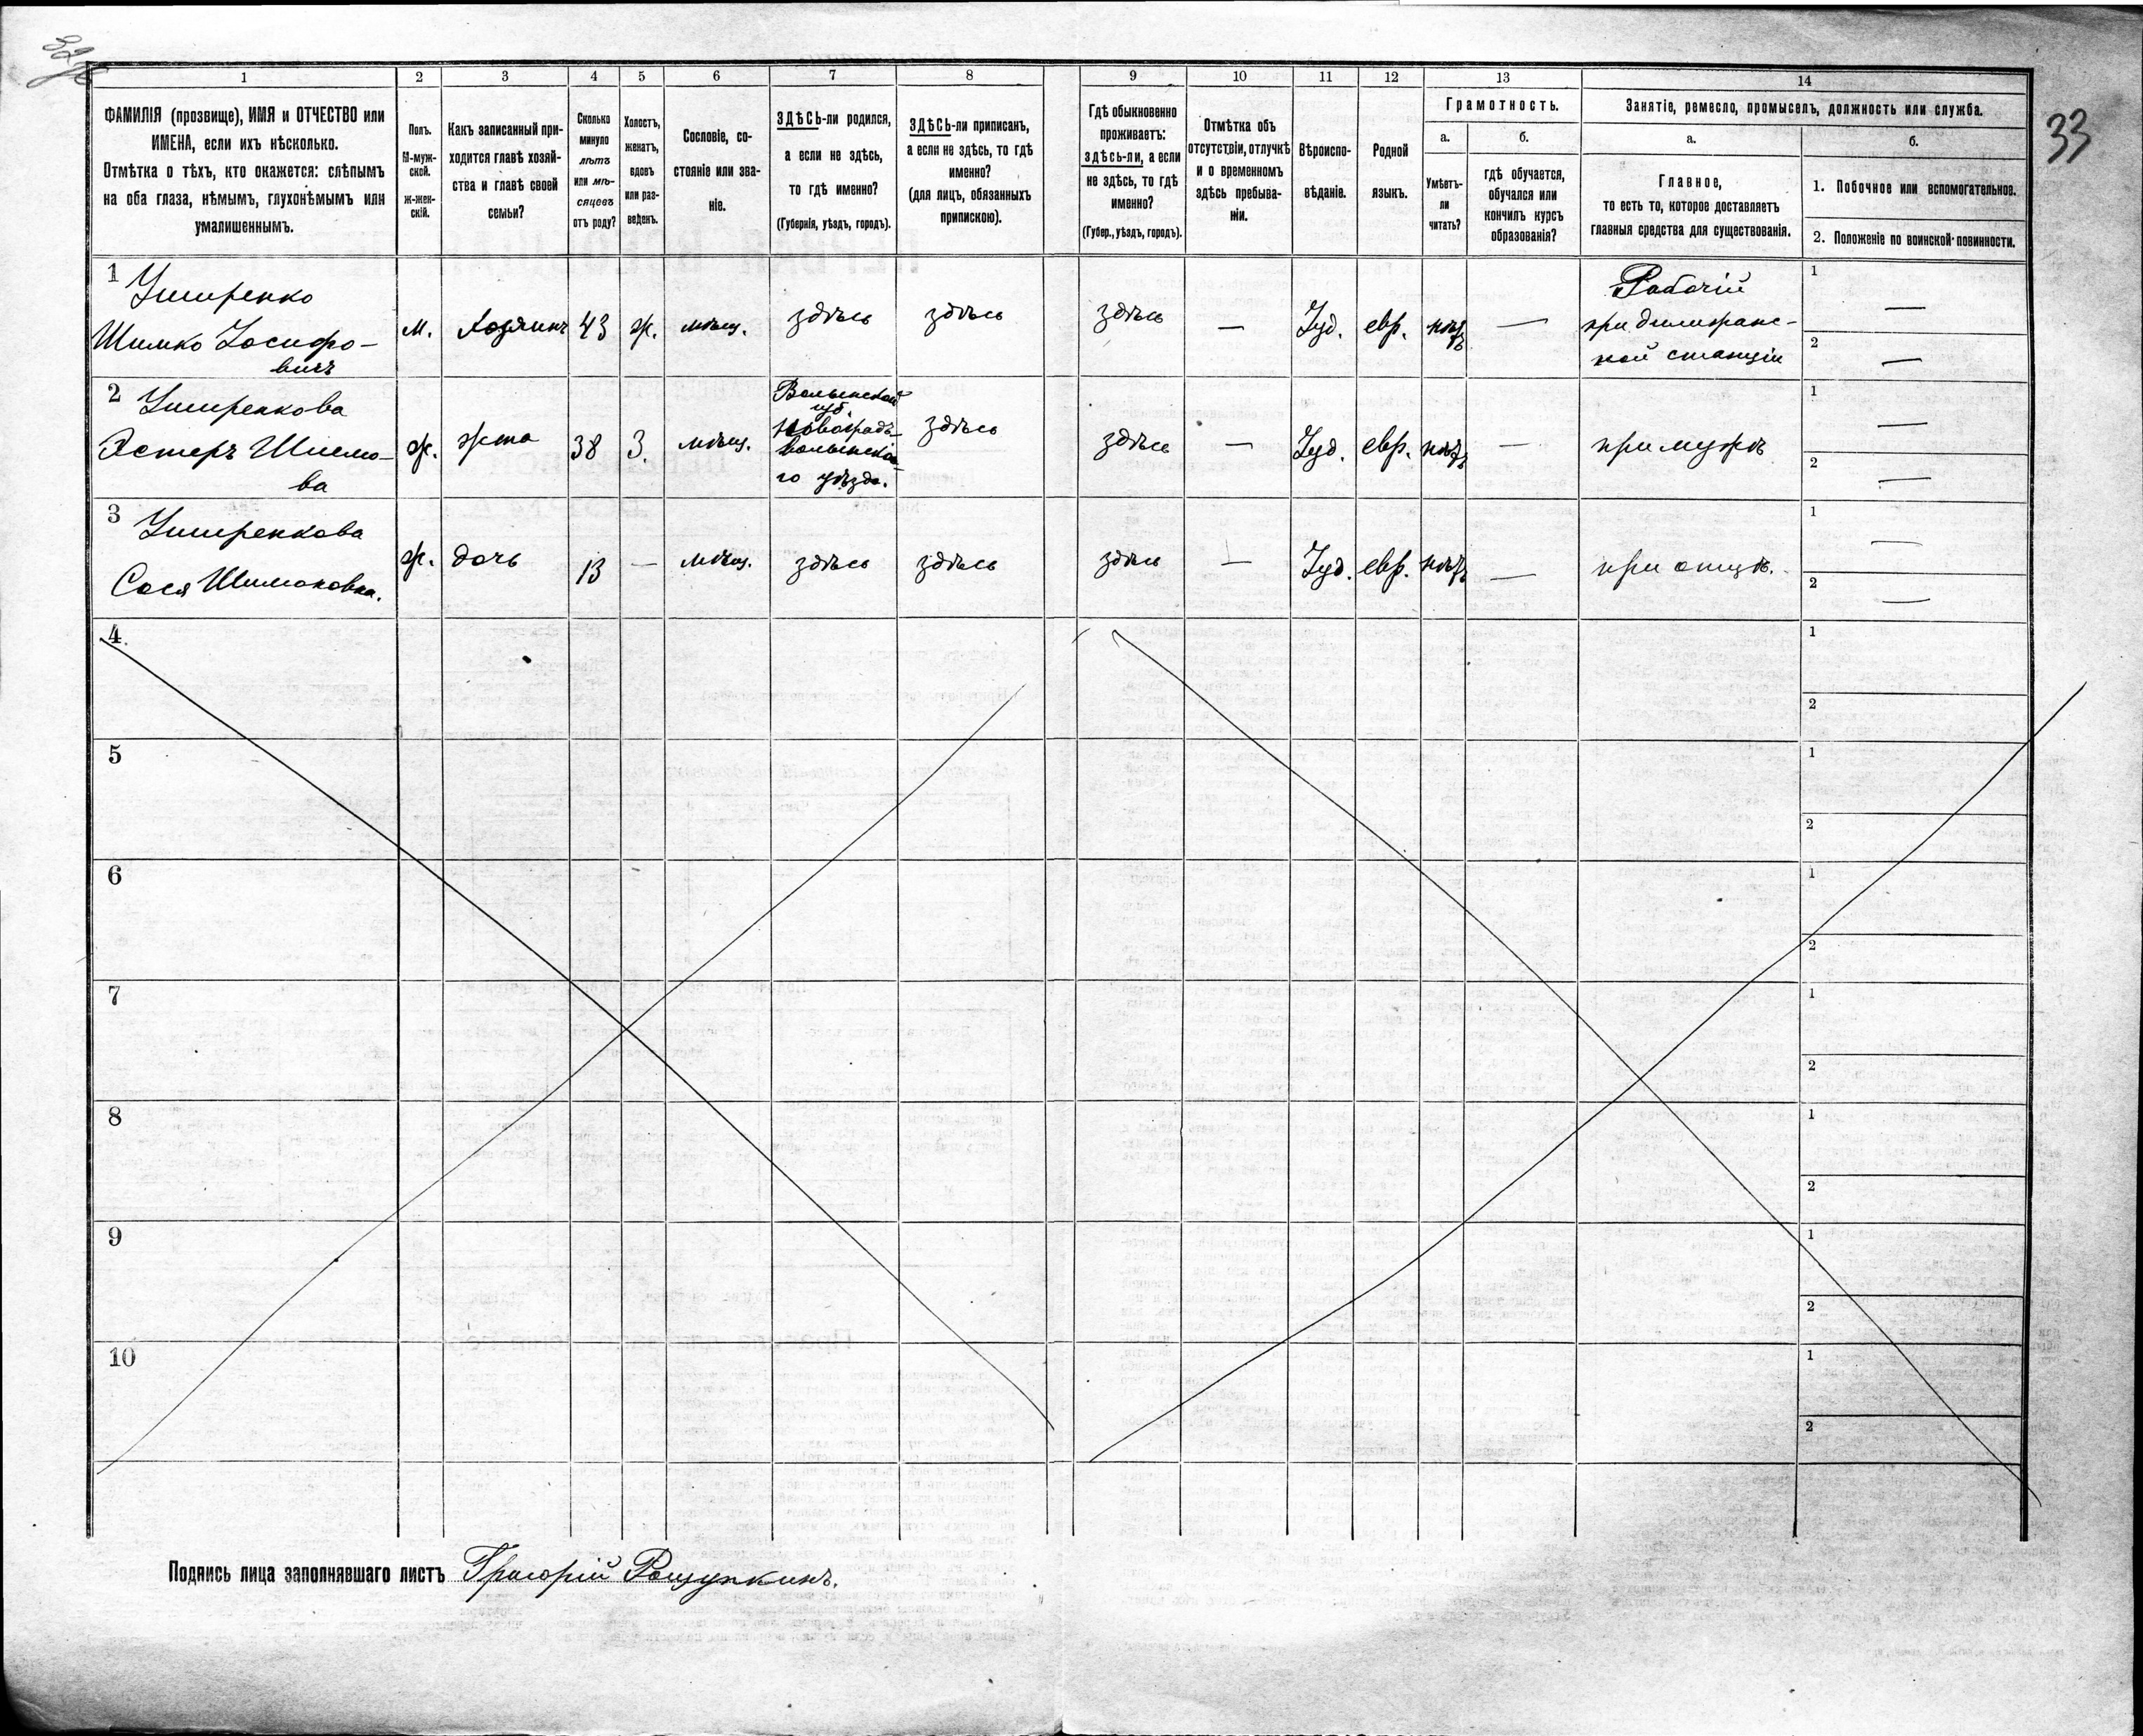 33
1
2
3
4
5
6
7
8
9
10
11
12
13
14
ФАМИЛІЯ (прозвище), ИМЯ и ОТЧЕСТВО или
ИМЕНА, если ихъ нѣсколько.
Отмѣтка о тѣхъ, кто окажется: слѣпымъ
на оба глаза, нѣмымъ, глухонѣмымъ или
умалишеннымъ.
Полъ.
М-муж-
ской.
Ж-жен-
скій.
Какъ записанный при-
ходится главѣ хозяй-
ства и главѣ своей
семьи?
Сколько
минуло
лѣтъ
или мѣ-
сяцевъ
отъ роду?
Холостъ,
женатъ,
вдовъ
или раз-
веденъ.
Сословіе, со-
стояніе или зва-
ніе.
ЗДѢСЬ-ли родился,
а если не здѣсь,
то гдѣ именно?
(Губернія, уѣздъ, городъ).
ЗДѢСЬ-ли приписанъ,
а если не здѣсь, то гдѣ
именно?
(для лицъ, обязанныхъ
припискою).
Гдѣ обыкновенно
проживаетъ:
здѣсь-ли, а если
не здѣсь, то гдѣ
именно?
(Губер., уѣздъ, городъ).
Отмѣтка объ
отсутствіи, отлучкѣ
и о временномъ
здѣсь пребыва-
ніи.
Вѣроиспо-
вѣданіе.
Родной
языкъ.
Грамотность.
а.
Умѣетъ-
ли
читать?
б.
гдѣ обучается,
обучался или
кончилъ курсъ
образованія?
Занятіе, ремесло, промыселъ, должность или служба.
а.
Главное,
то есть то, которое доставляетъ
главныя средства для существованія.
б.
1. Побочное или вспомогательное.
2. Положеніе по воинской повинности.
1
Шимко Іосифо-
вичъ
м. Хозяинъ 43 ж. мѣщ. здѣсь здѣсь здѣсь — Іуд. евр. нѣтъ —
Рабочій
при дилижанс-
кой станціи
1 —
2 —
2
Эстеръ
ва
ж. жена 38 З. мѣщ.
Волынской
губ.
Новоградъ-
волынска-
го уѣзда.
здѣсь здѣсь — Іуд. евр. нѣтъ — при мужѣ
1 —
2 —
3
Сося Шимоновна.
ж. дочь 13 — мѣщ. здѣсь здѣсь здѣсь — Іуд. евр. нѣтъ — при отцѣ.
1 —
2 —
4
1
2
5
1
2
6
1
2
7
1
2
8
1
2
9
1
2
10
1
2
Подпись лица заполнявшаго листъ Григорій